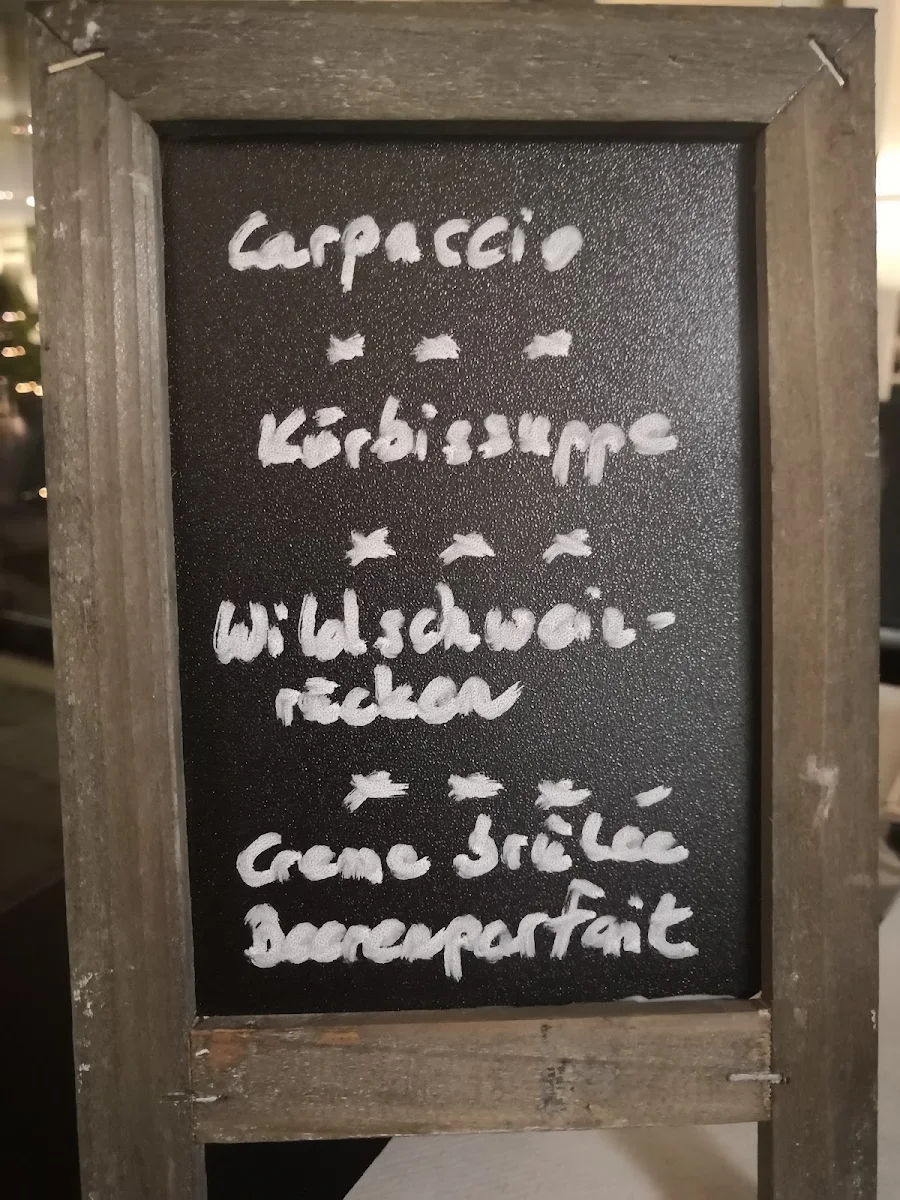 Carpaccio
* * *
Kürbissuppe
* * *
Wildschwein-
rücken
* * *
Creme Brûlée
Beerenparfait